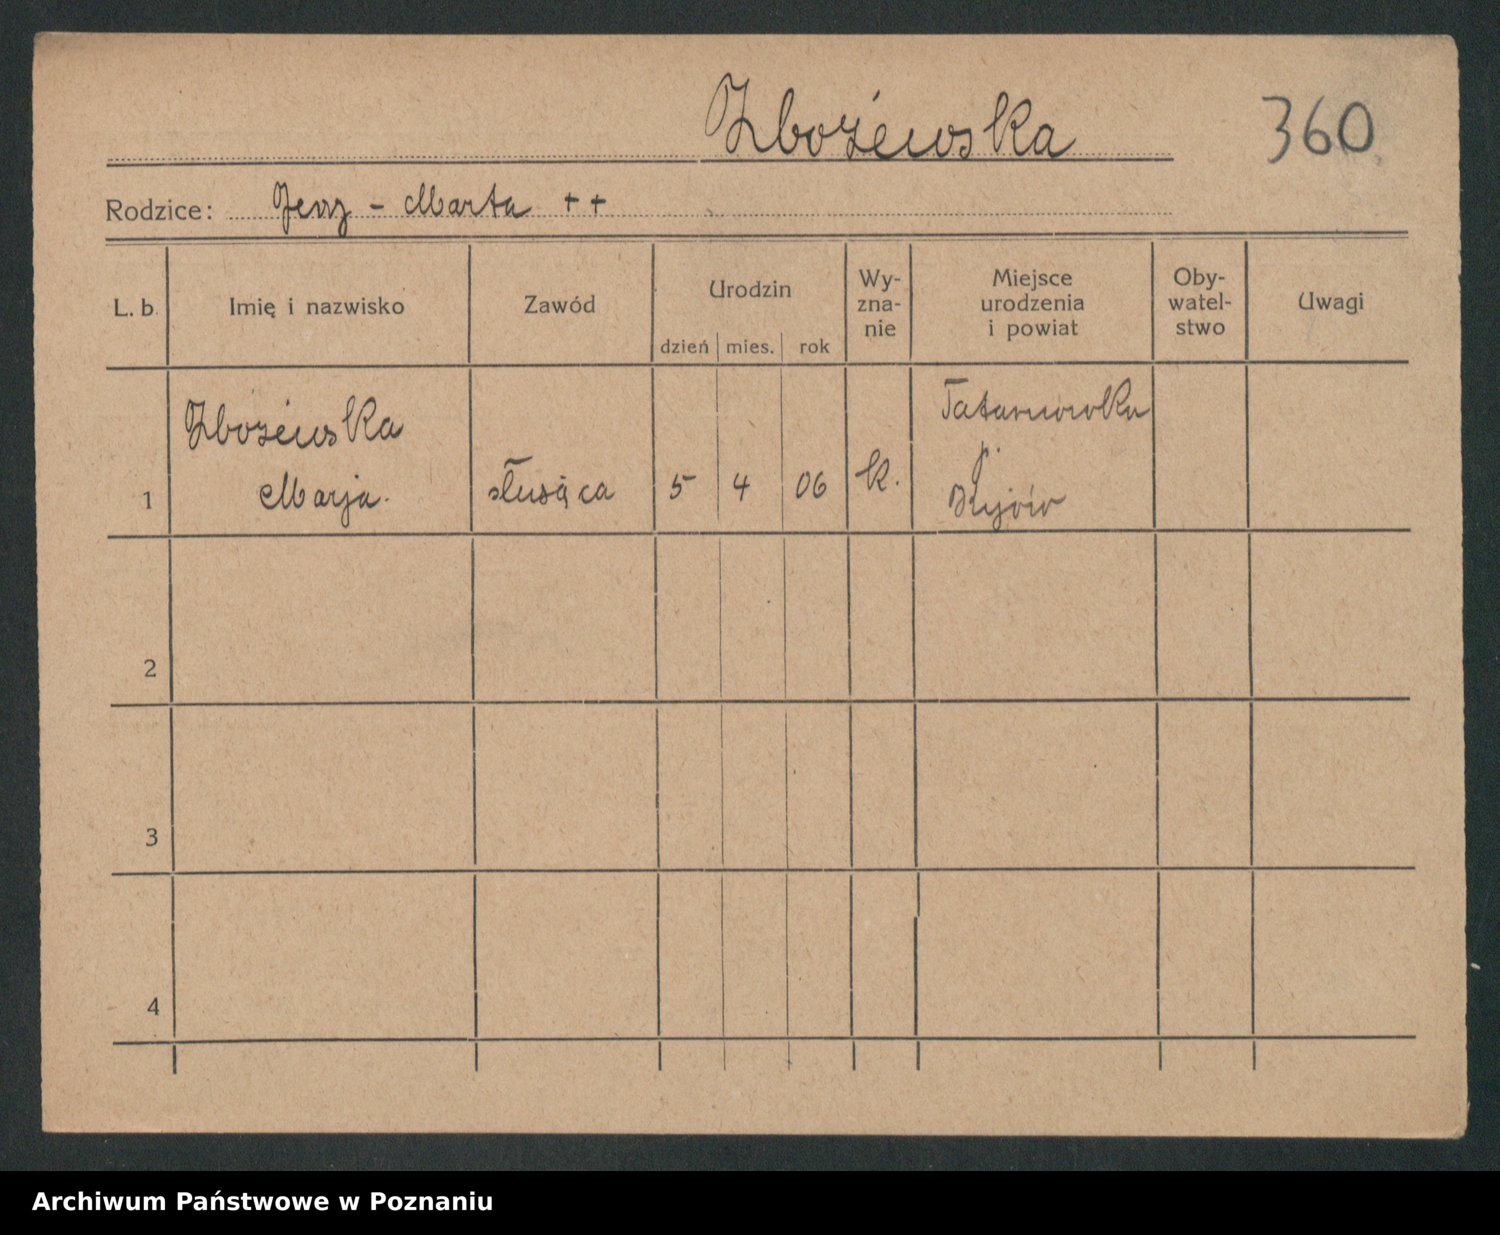 Zbożewska 360
Rodzice: Jerzy - Marta ++
L. b. Imię i nazwisko Zawód Urodzin dzień mies. rok Wy-zna-nie Miejsce urodzenia i powiat Oby-watel-stwo Uwagi
Zbożewska
Marja.
1 służąca 5 4 06 k.
p.
Kijów
2
3
4
Archiwum Państwowe w Poznaniu